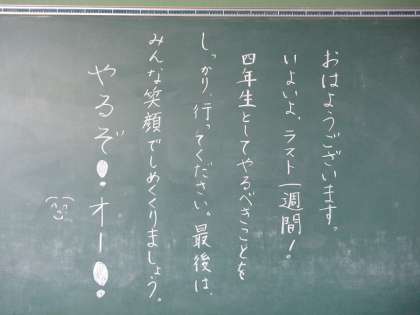 おはようございます。
いよいよ、ラスト一週間！
四年生としてやるべきことを
しっかり、行ってください。最後は、
みんな笑顔でしめくくりましょう。
やるぞ！オー！